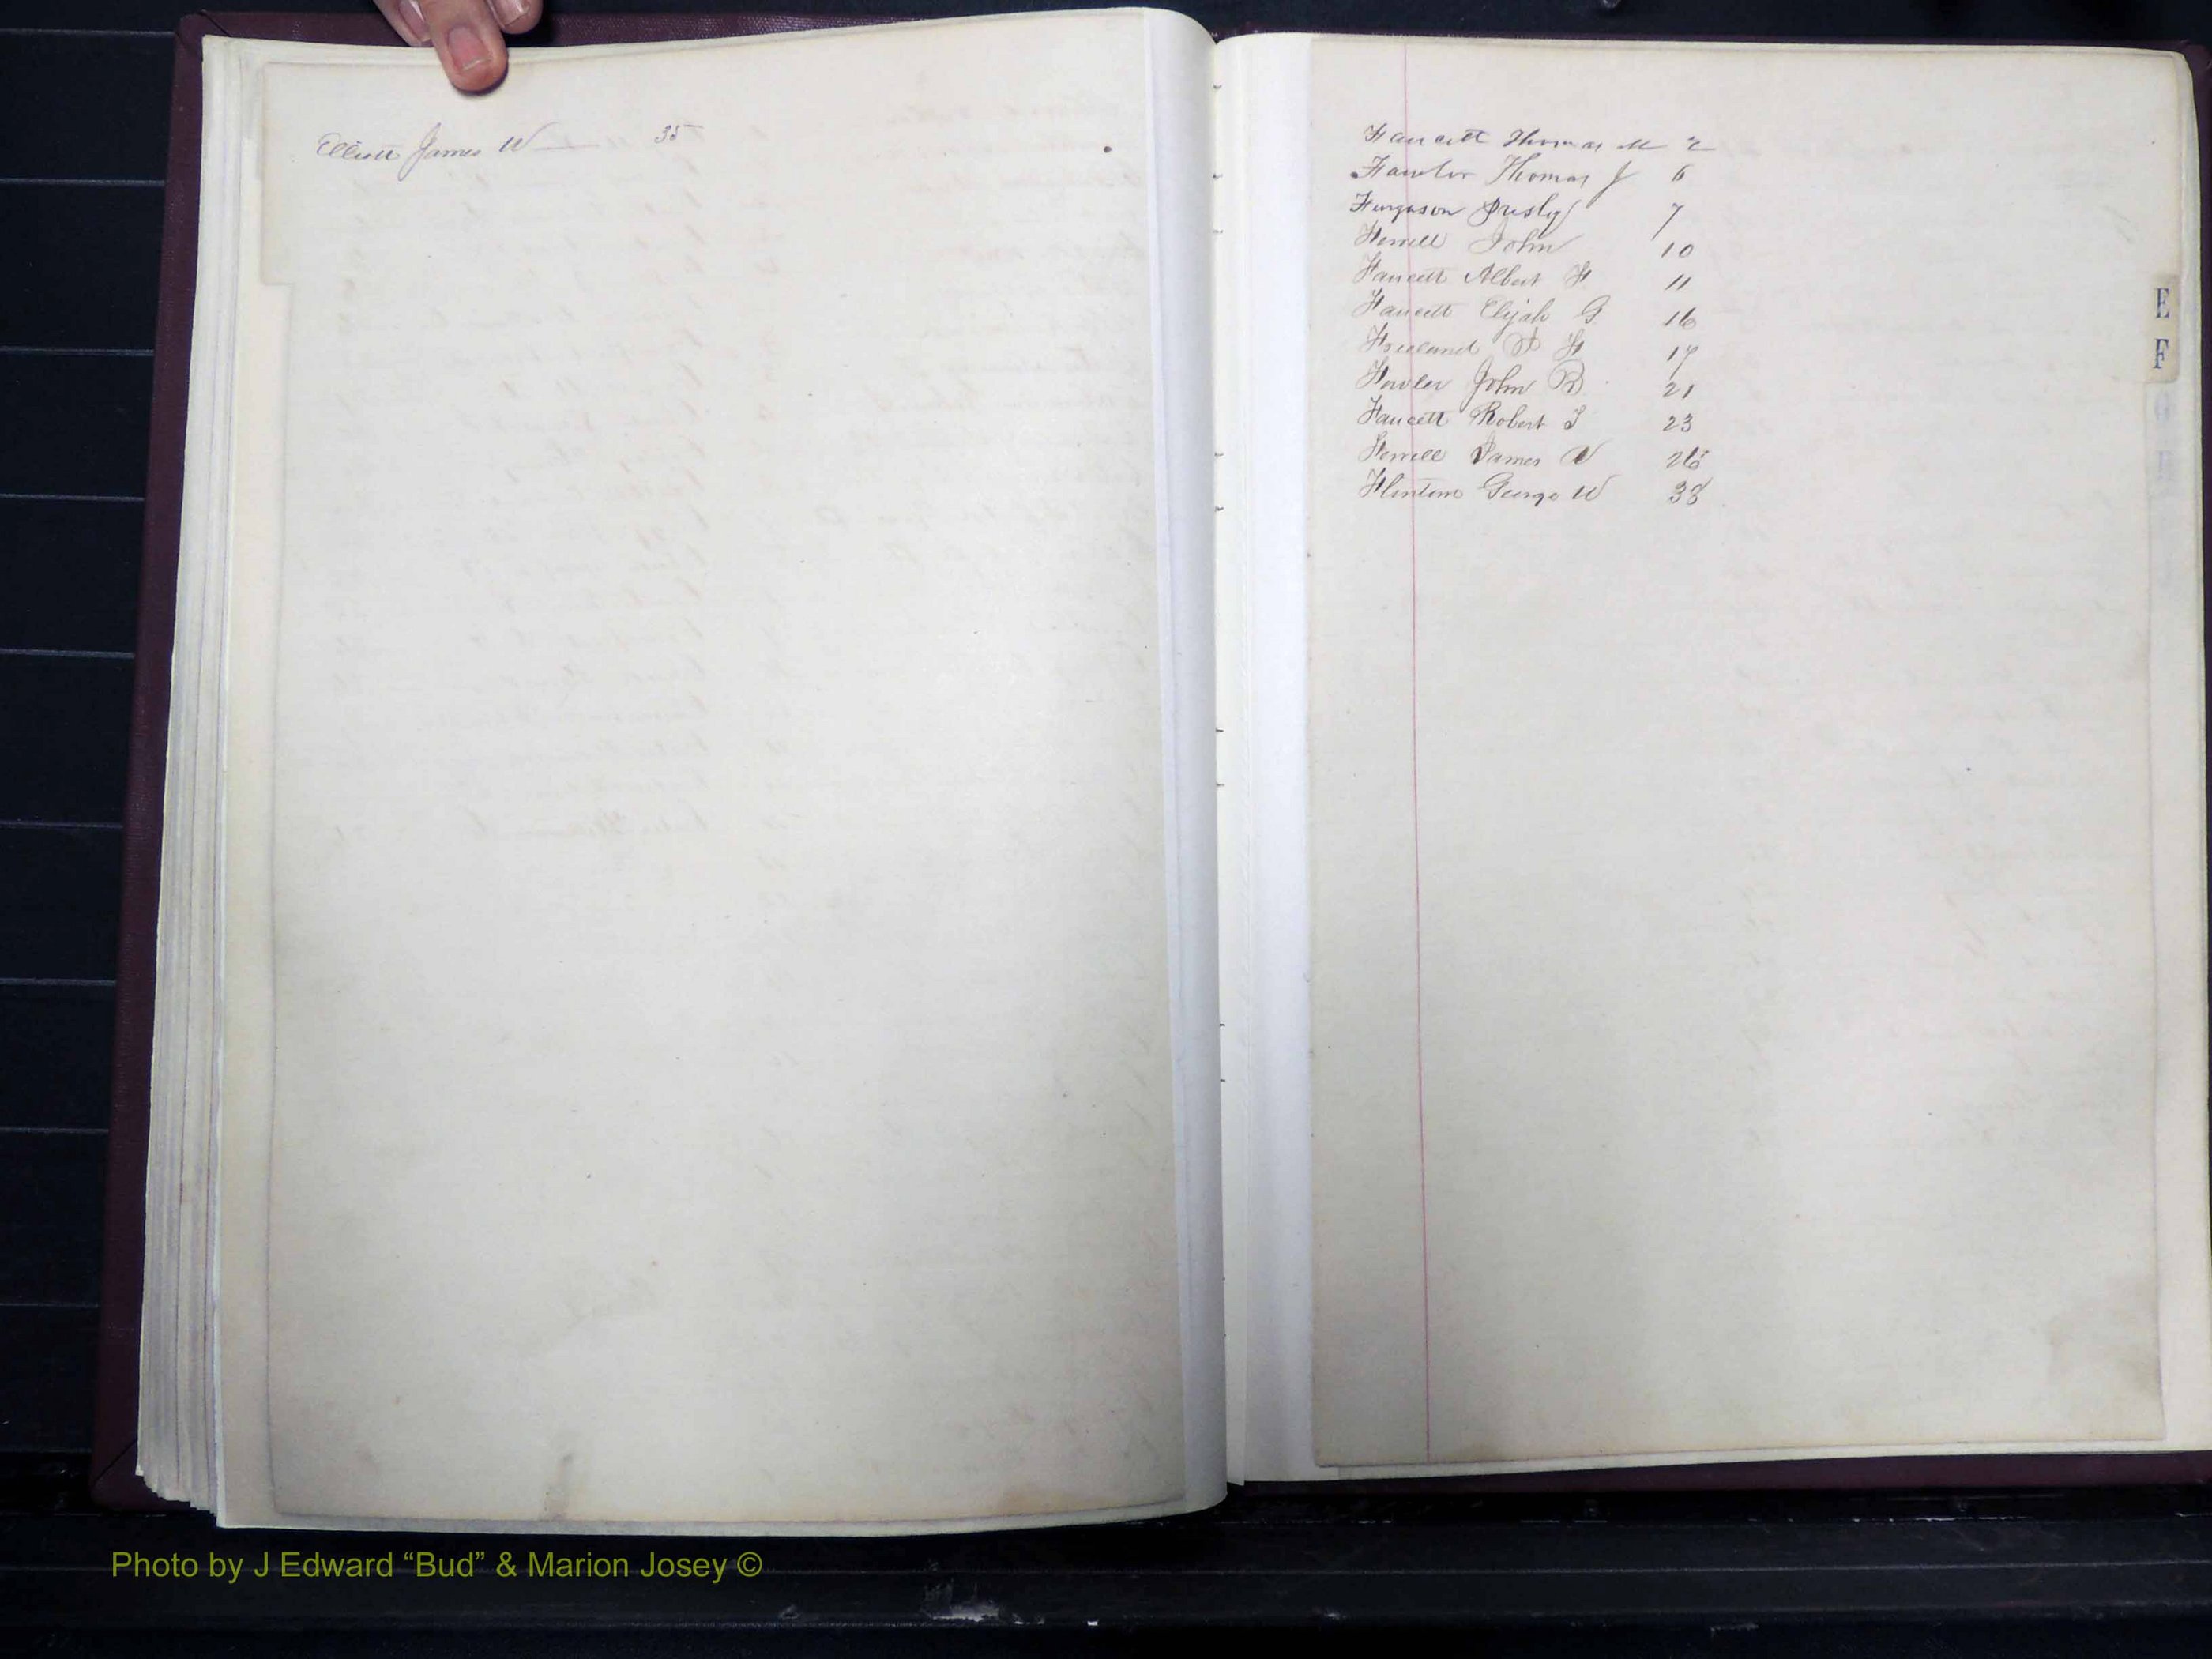 Elliott James W 35
Faucett Thomas M 2
Fawler Thomas J 6
Ferguson Presly 7
Ferrell John 10
Faucett Albert F 11
Faucett Elijah G 16
Freeland F 17
Fowler John R 21
Faucett Robert T 23
Ferrell James 26
Flintom George W 38
E
F
G
H
Photo by J Edward “Bud” & Marion Josey ©